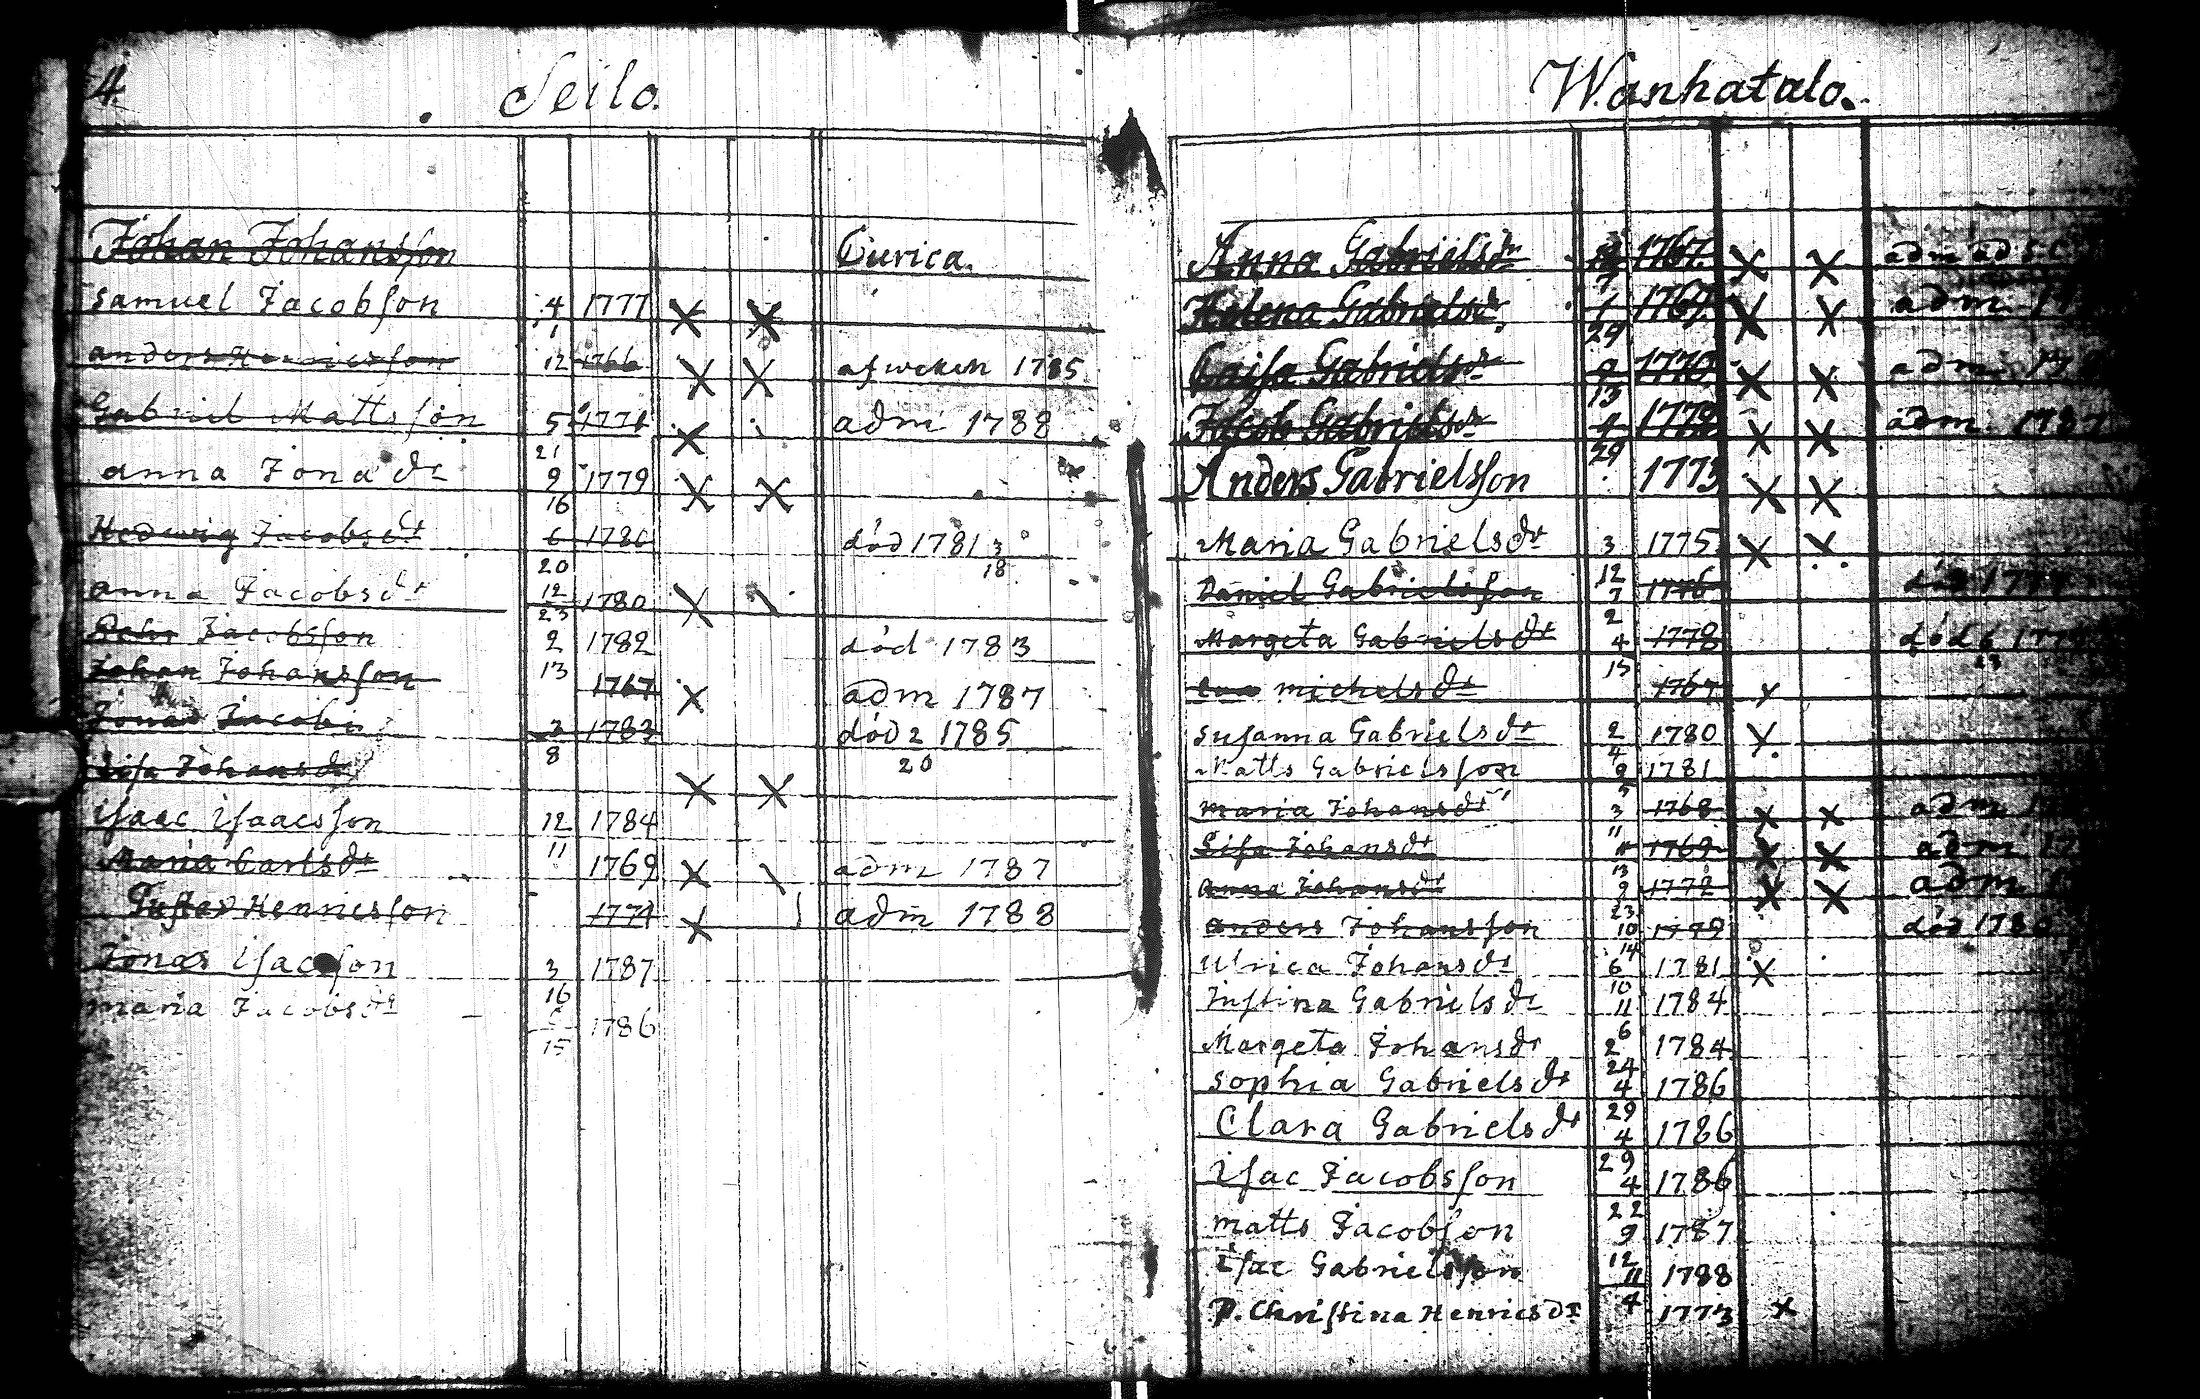 4.
Seilo.
Johan Johansson Curica.
Samuel Jacobsson 4/1 1777 X X
anders Henricsson 12 1766 X X afweken 1785
Gabriel Mattsson 5/21 1771 X adm 1788
anna Jona dr 9/16 1779 X X
Hedewig Jacobsdr 6/20 1780 död 1781 3/18
anna Jacobsdr 12/23 1780 X \
Pehr Jacobsson 2/13 1782 död 1783
Johan Johansson 1767 X adm 1787
Jonas Jacobs 2/8 1783 död 2/20 1785
Lisa Johansdr X X
Isaac Isaacsson 12/11 1784
Maria Carlsdr 1769 X \ adm 1787
Gustav Henricsson 1771 X adm 1788
Jonas Isacsson 3/16 1787
maria Jacobsdr 15 1786
Wanhatalo.
Anna Gabrielsdr 7 1767 X X adm ad S.C.
Helena Gabrielsdr 29 1767 X X adm 17
Caisa Gabrielsdr 9/13 1770 X X adm 17
Jacob Gabriels 29 1772 X X adm. 1787
Anders Gabrielsson 1773 X X
Maria Gabrielsdr 3/12 1775 X X
Daniel Gabrielsson 7/2 1776 död 177
Margeta Gabrielsdr 4/15 1778 död 6/23 177
Eva michelsdr 1767 X
Susanna Gabrielsdr 2/4 1780 X
Matts Gabrielsson 9/5 1781
maria Johansdr 3/11 1768 X X adm 1
Lisa Johansdr 11/13 1769 X X adm 17
Anna Johansdr 9/23 1772 X X adm
Anders Johansson 10/14 1779 död 1780
Ulrica Johansdr 6/10 1781 X
Justina Gabrielsdr 11/6 1784
Margeta Johansdr 2/24 1784
Sophia Gabrielsdr 4/29 1786
Clara Gabrielsdr 4/29 1786
Isac Jacobsson 4/22 1786
matts Jacobsson 9/12 1787
Isac Gabrielsson 11/4 1788
P. Christina Henricsdr 1773 X